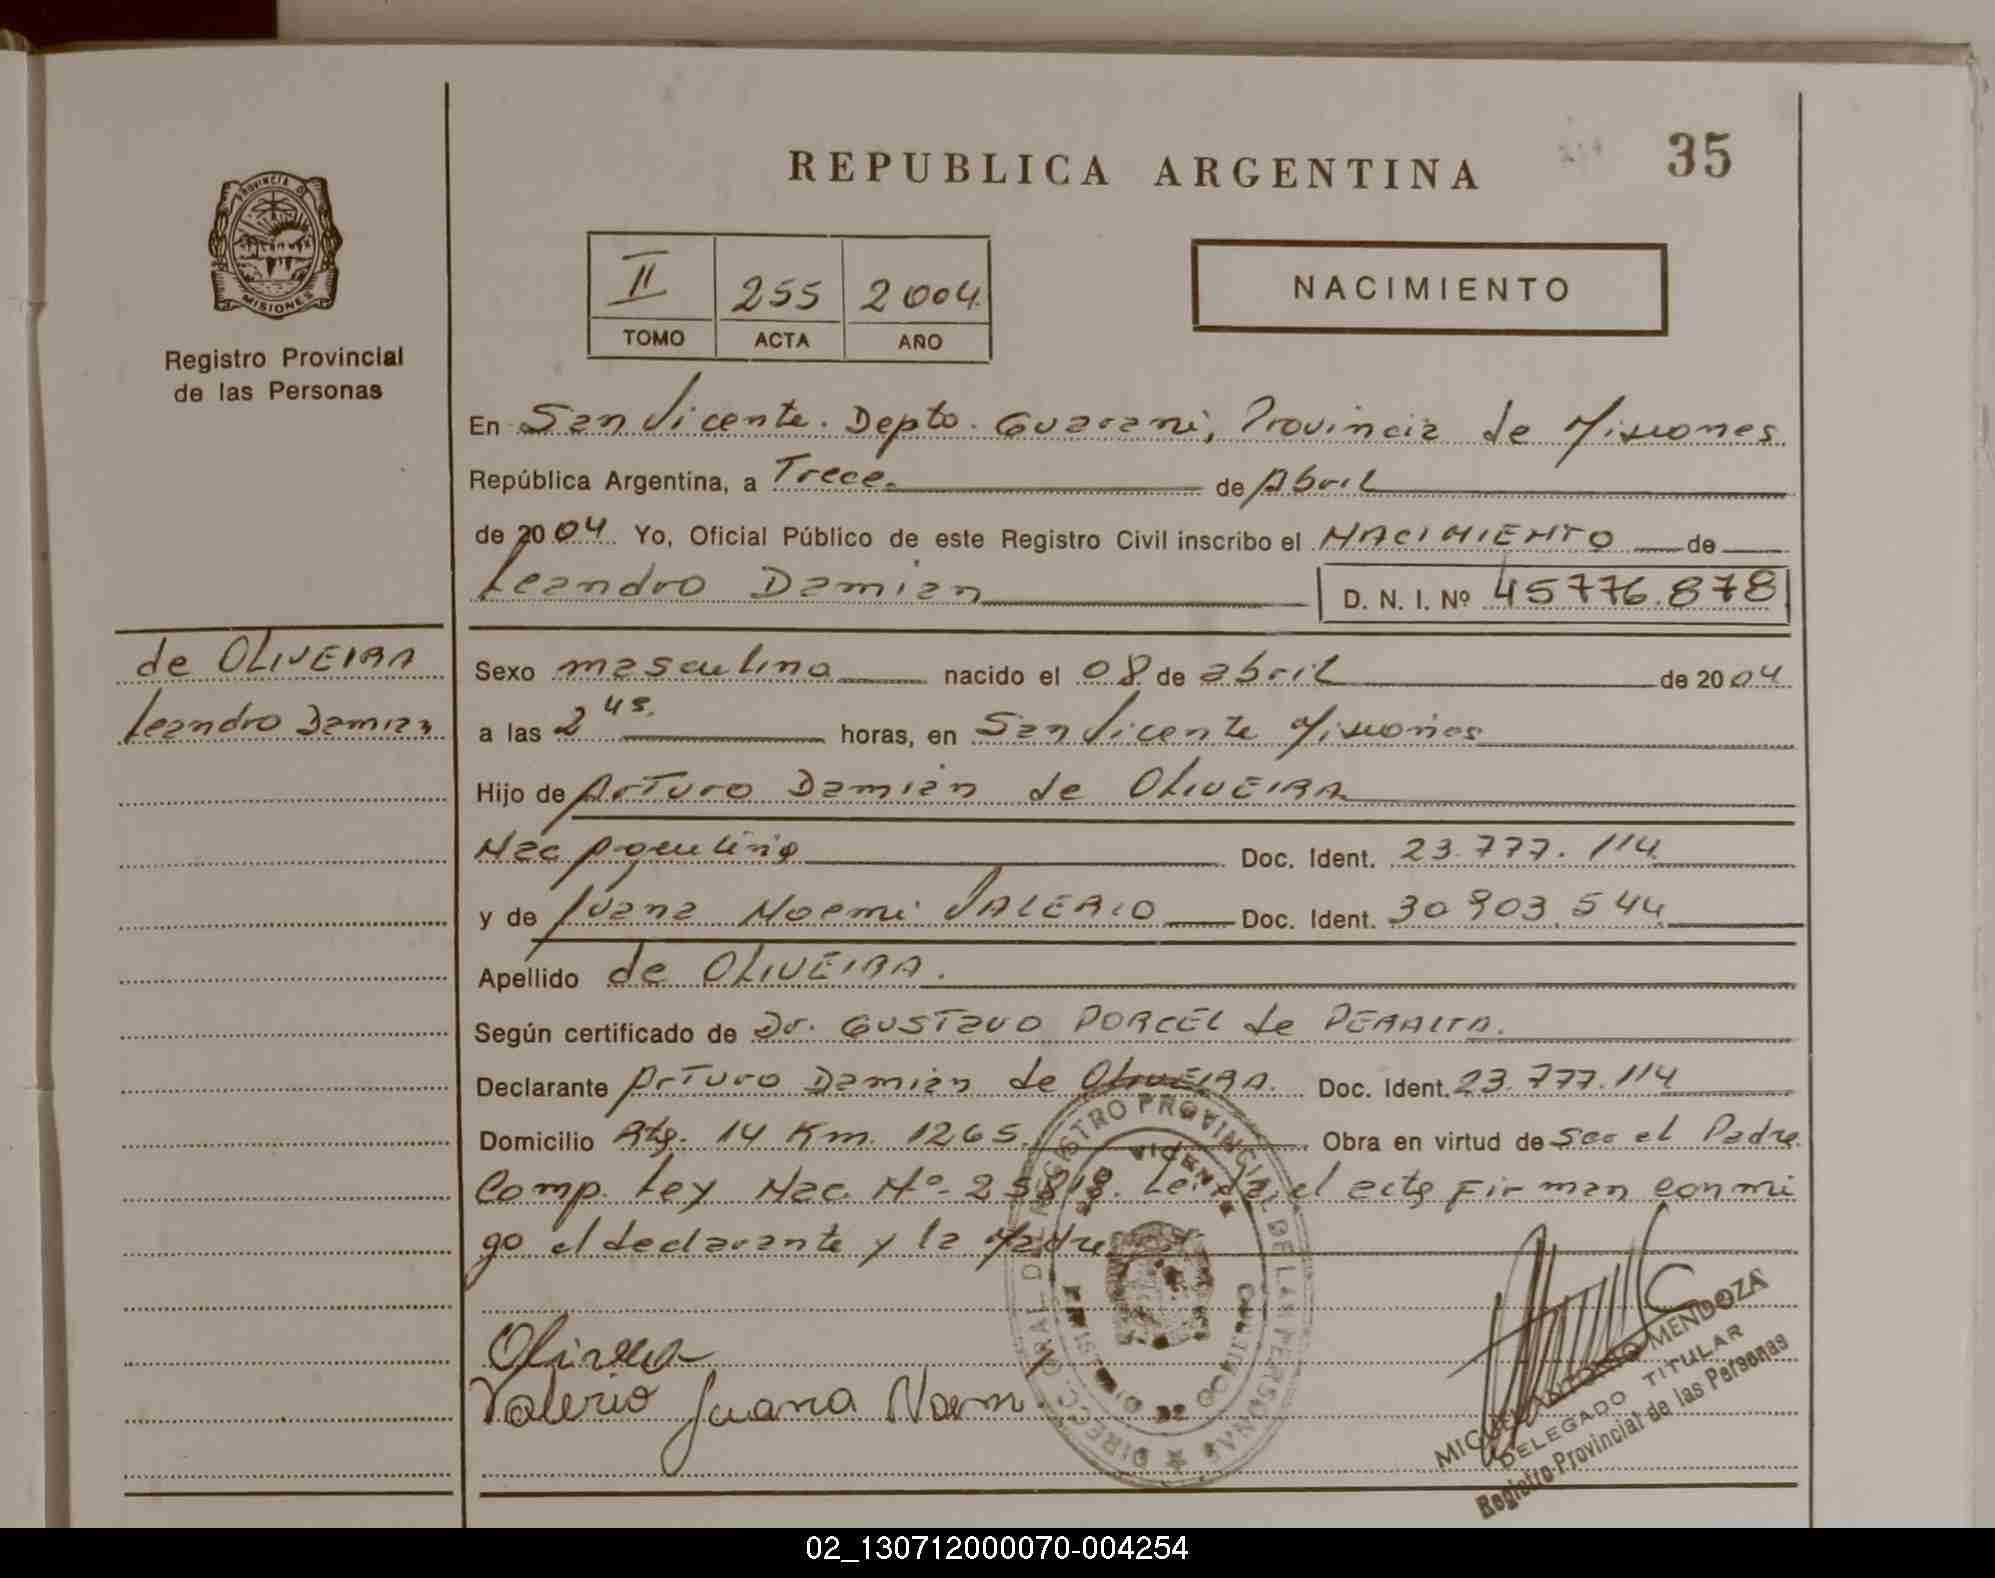 REPUBLICA ARGENTINA
35
PROVINCIA D
MISIONES
Registro Provincial
de las Personas
II 255 2004
TOMO ACTA AÑO
NACIMIENTO
En San Vicente. Depto. Guarani, Provincia de Misiones
República Argentina, a Trece. de Abril
de 2004 Yo, Oficial Público de este Registro Civil inscribo el NACIMIENTO de
Leandro Damian D. N. I. Nº 45776.878
de OLIVEIRA
Leandro Damian
Sexo masculino nacido el 08 de abril de 2004
a las 2 45. horas, en San Vicente Misiones
Hijo de Arturo Damián de OLIVEIRA
Nac Argentino Doc. Ident. 23.777.114
y de Juana Noemi VALERIO Doc. Ident. 30 903.544
Apellido de OLIVEIRA.
Según certificado de Dr. GUSTAVO PORCEL de PERALTA.
Declarante Arturo Damian de OLIVEIRA. Doc. Ident. 23.777.114
Domicilio Rta. 14 Km. 1265. Obra en virtud de ser el Padre
Comp. Ley Nac. Nº 25818. Leída el acta Firman conmi
go el declarante y la Madre
Oliveira
Valerio Juana Noem
DIRECC. GRAL. DEL REGISTRO PROVINCIAL DE LAS PERSONAS
VICENTE
MIGUEL ANTONIO MENDOZA
DELEGADO TITULAR
Registro Provincial de las Personas
02_130712000070-004254